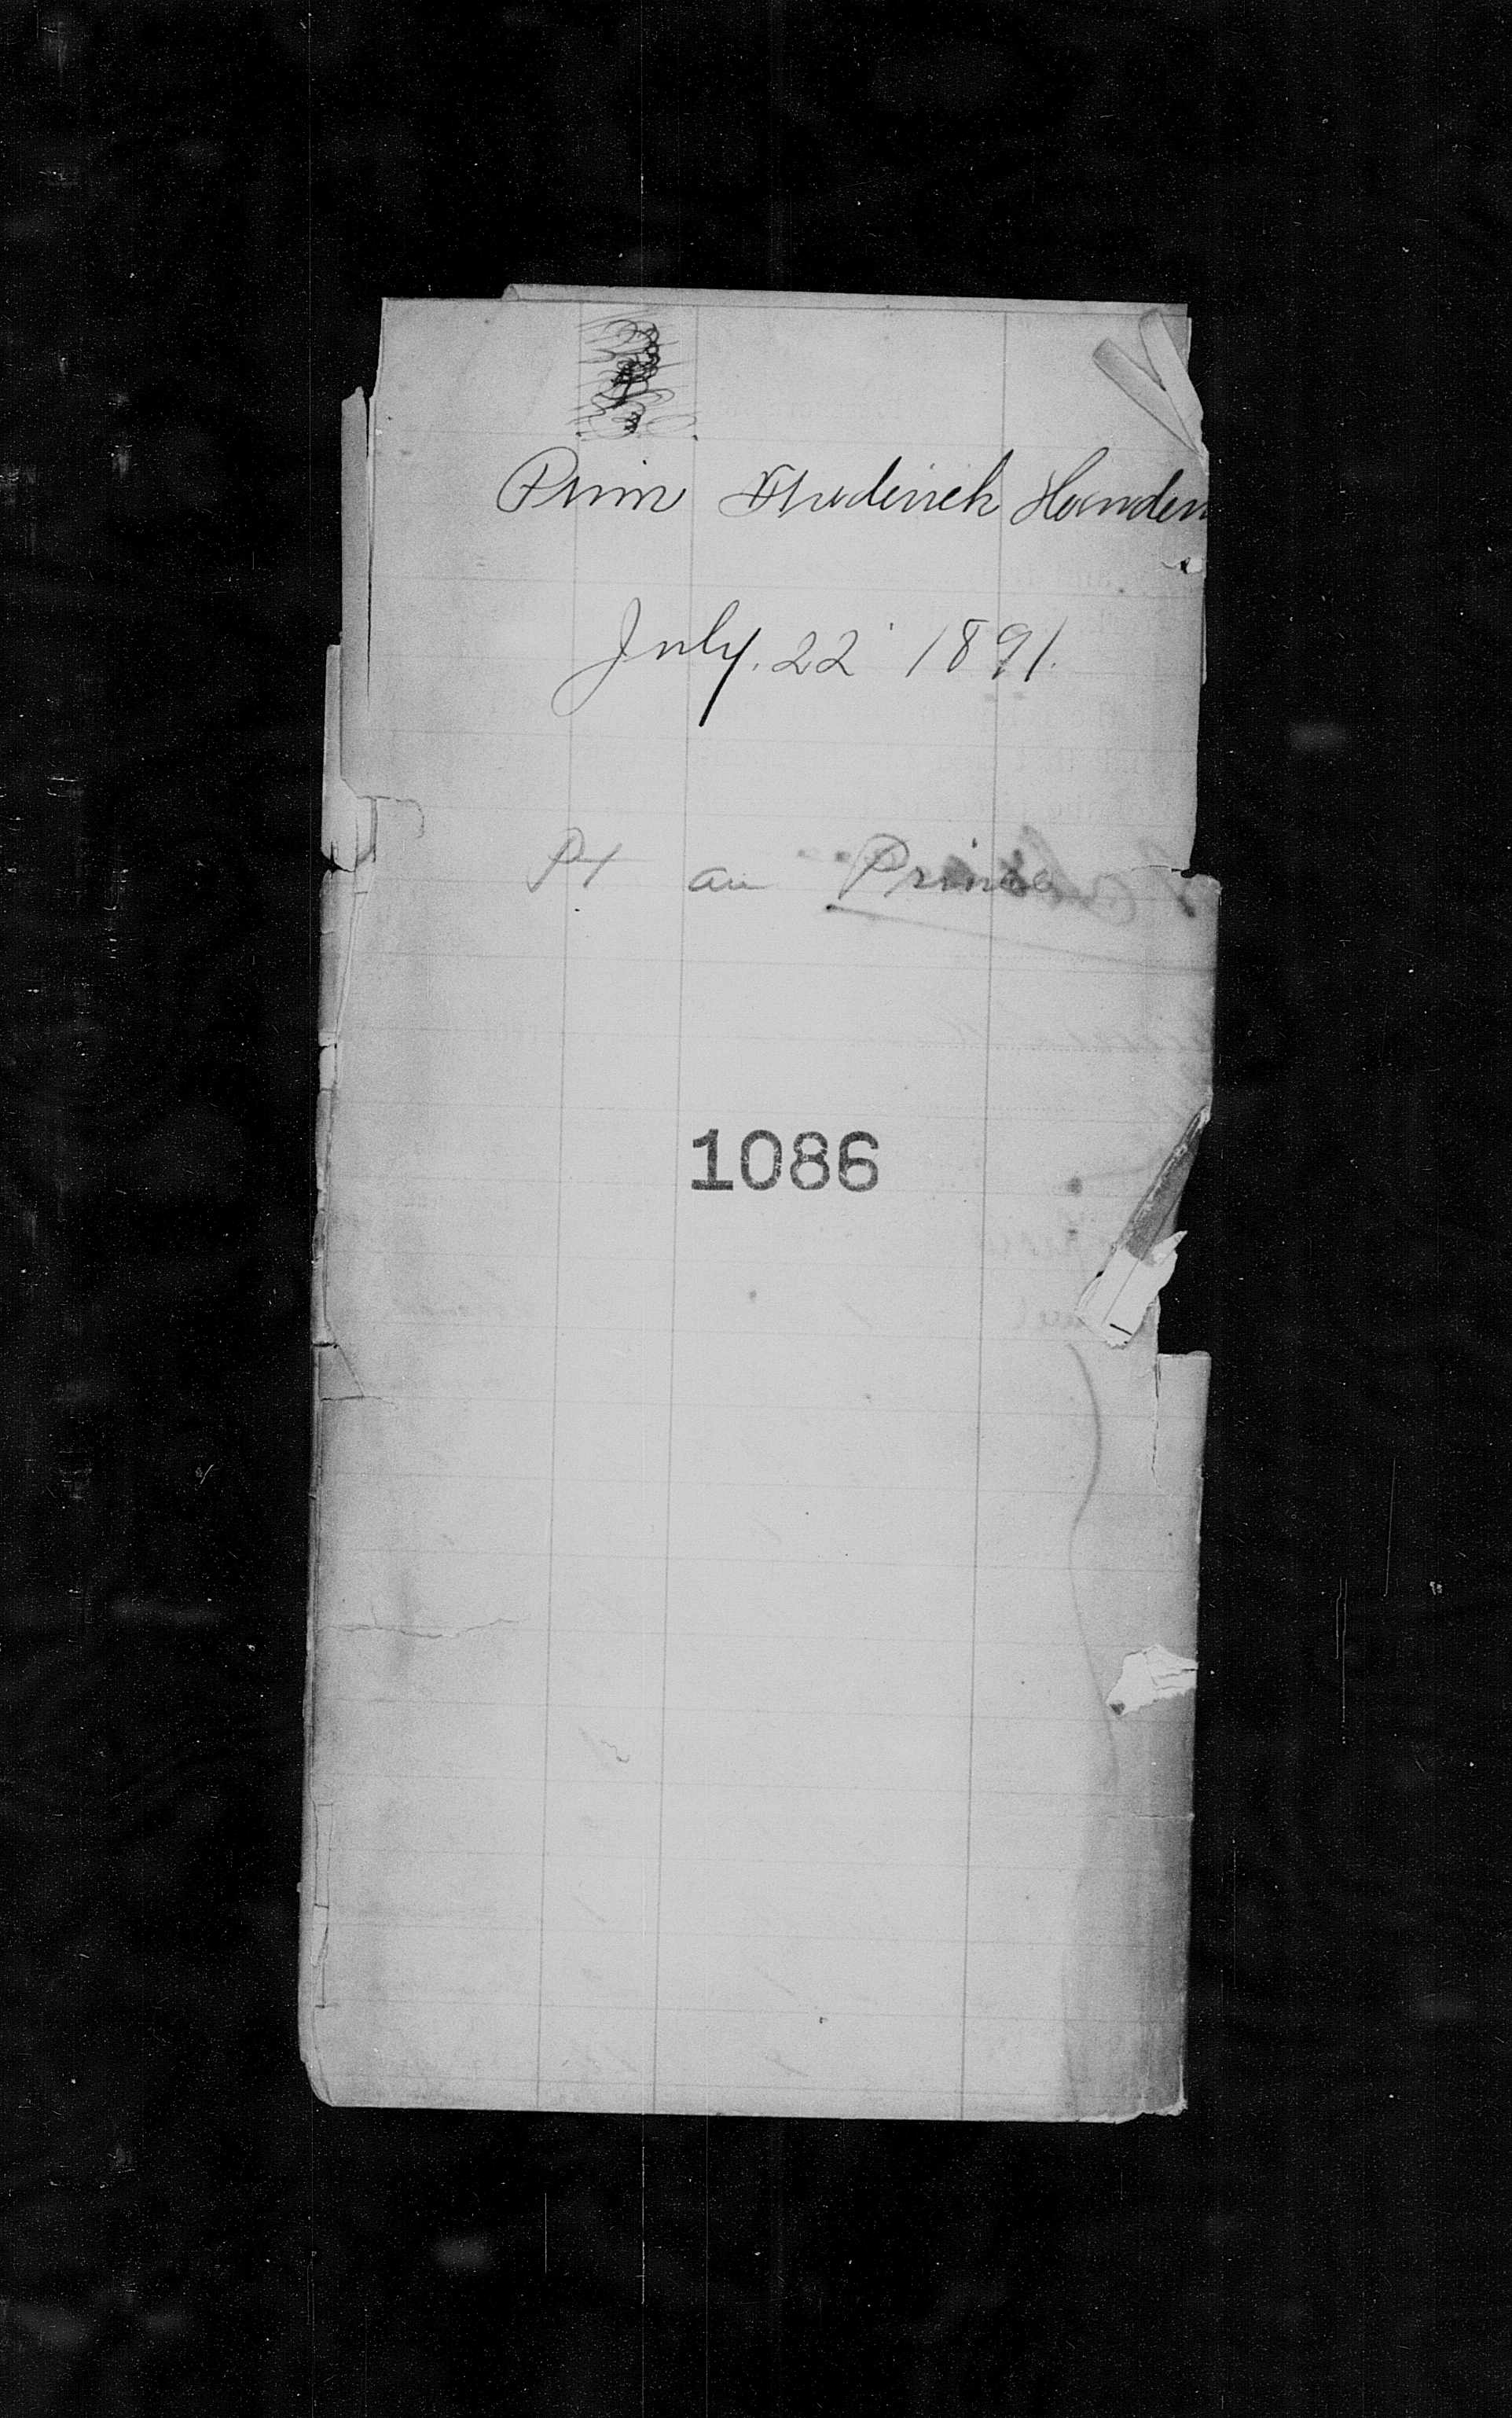 Prim Frederick Hamden
July. 22 1891.
Pt au Prince
1086